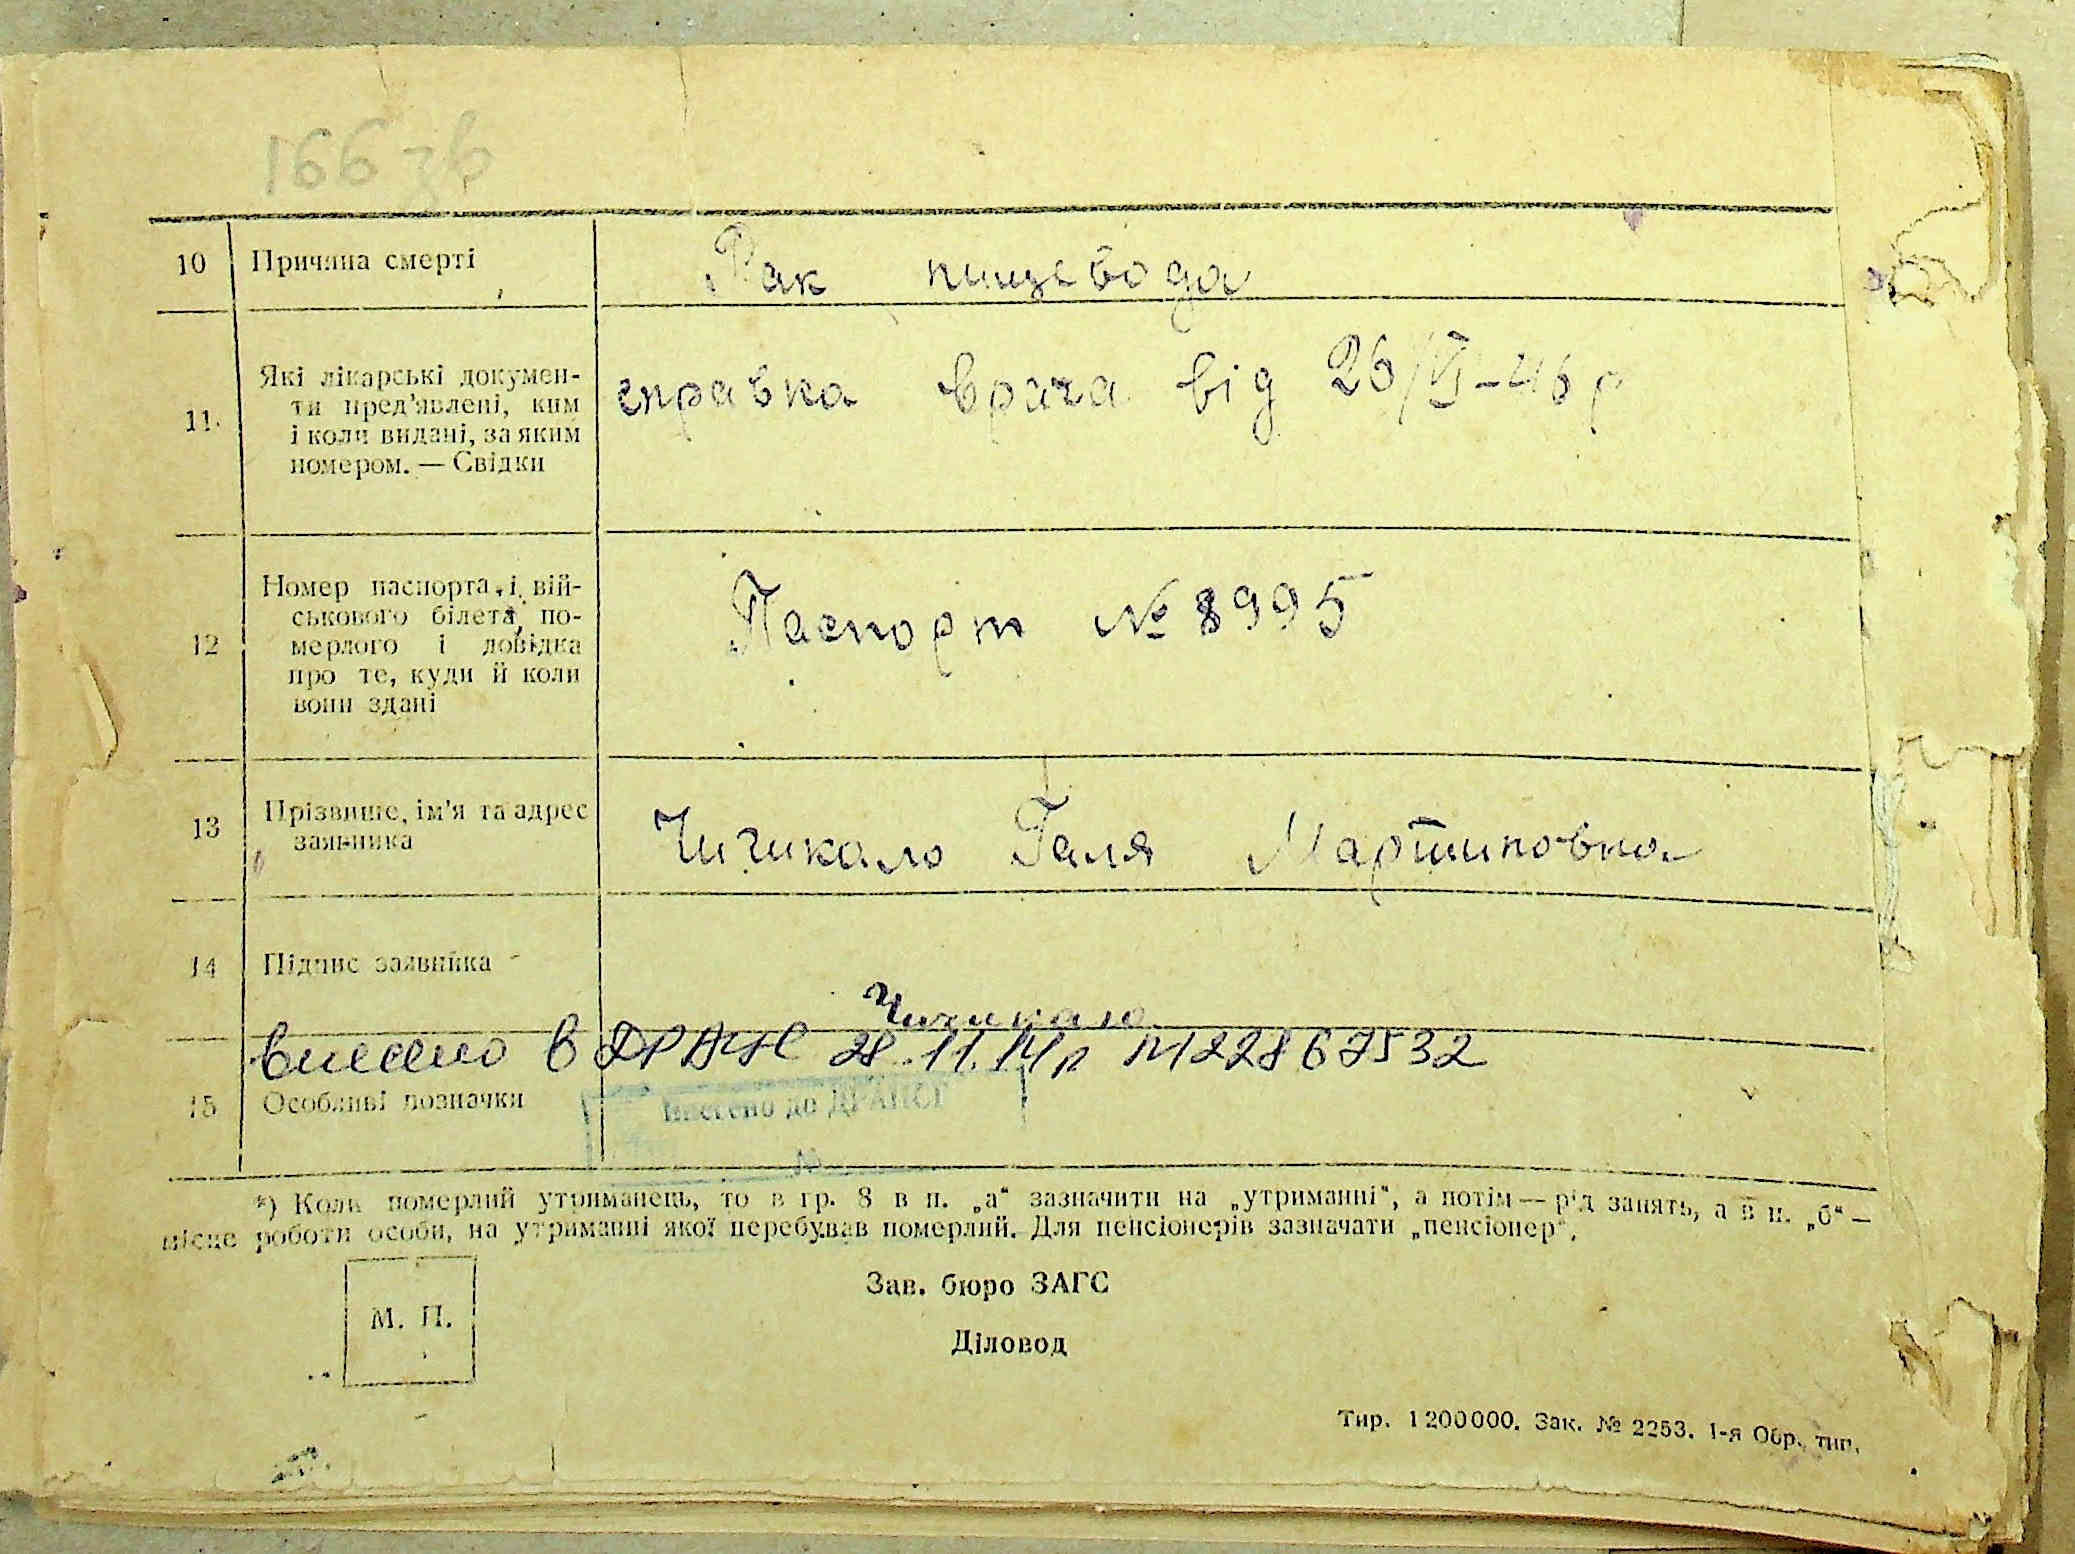 166 зв
10 Причина смерті Рак пищевода
Які лікарські докумен-
ти пред'явлені, ким
11. справка врача від 26/VI-46 р
і коли видані, за яким
номером. — Свідки
Номер паспорта і вій-
ськового білета по-
12 мерлого і довідка Паспорт № 8995
про те, куди й коли
вони здані
13 Прізвище, ім'я та адрес Чигикало Галя Мартиновна
заявника
14 Підпис заявника Чигикало
внесено в ДРАЦС 28.11.14р №22867532
15 Особливі позначки Внесено до ДРАЦСГ
№
*) Коли померлий утриманець, то в гр. 8 в п. „а“ зазначити на „утриманні“, а потім — рід занять, а в п. „б“ —
місце роботи особи, на утриманні якої перебував померлий. Для пенсіонерів зазначати „пенсіонер“.
М. П.
Зав. бюро ЗАГС
Діловод
Тир. 1200000. Зак. № 2253. 1-я Обр. тип.